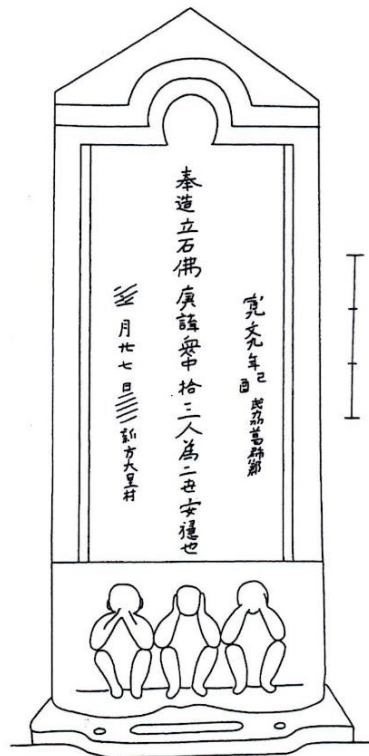 寛文九年己酉 武刕葛飾郡
奉造立石佛庚講衆中拾三人為二世安穏也
月廿七日 新方大里村